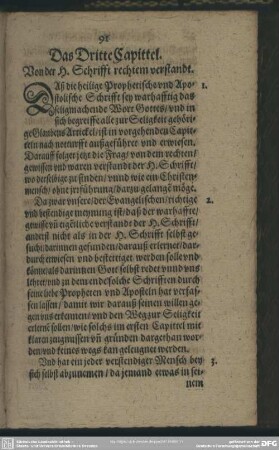 91
Das Dritte Capittel.
Von der H. Schrifft rechtem verstandt.
DAß die heilige Prophetische vnd Apo- 1.
stolische Schrifft sey warhafftig das
seligmachende Wort Gottes/ vnd in
sich begreiffe alle zur Seligkeit gehöri-
ge Glaubens Artickel/ ist in vorgehenden Capit-
teln nach notturfft außgeführet vnd erwiesen.
Darauff folget jetzt die Frag/ von dem rechten/
gewissen vnd waren verstandt der H. Schrifft/
wo derselbige zu finden/ vnnd wie ein Christen-
mensch/ ohne jrrführung/ darzu gelangē möge.
Da zwar vnsere/ der Evangelischen/ richtige 2.
vnd bestendige meynung ist/ daß der warhaffte/
gewisse vñ eigētliche verstandt der H. Schrifft/
anderst nicht als in der H. Schrifft selbst ge-
sucht/ darinnen gefunden/ darauß erlernet/ dar-
durch erwiesen vnd bestettiget werden solle vnd
könne/ als darinnen Gott selbst redet vnnd vns
lehret/ vnd zu dem ende solche Schrifften durch
seine liebe Propheten vnd Aposteln hat verfas-
sen lassen/ damit wir darauß seinen willen ge-
gen vns erkennen/ vnd den Weg zur Seligkeit
erlernē sollen/ wie solchs im ersten Capittel mit
klaren zeugnissen vñ gründen dargethan wor-
den/ vnd keines wegs kan geleugnet werden.
Vnd hat ein jeder verstendiger Mensch bey 3.
sich selbst abzunemen/ da jemand etwas in sei-
nem